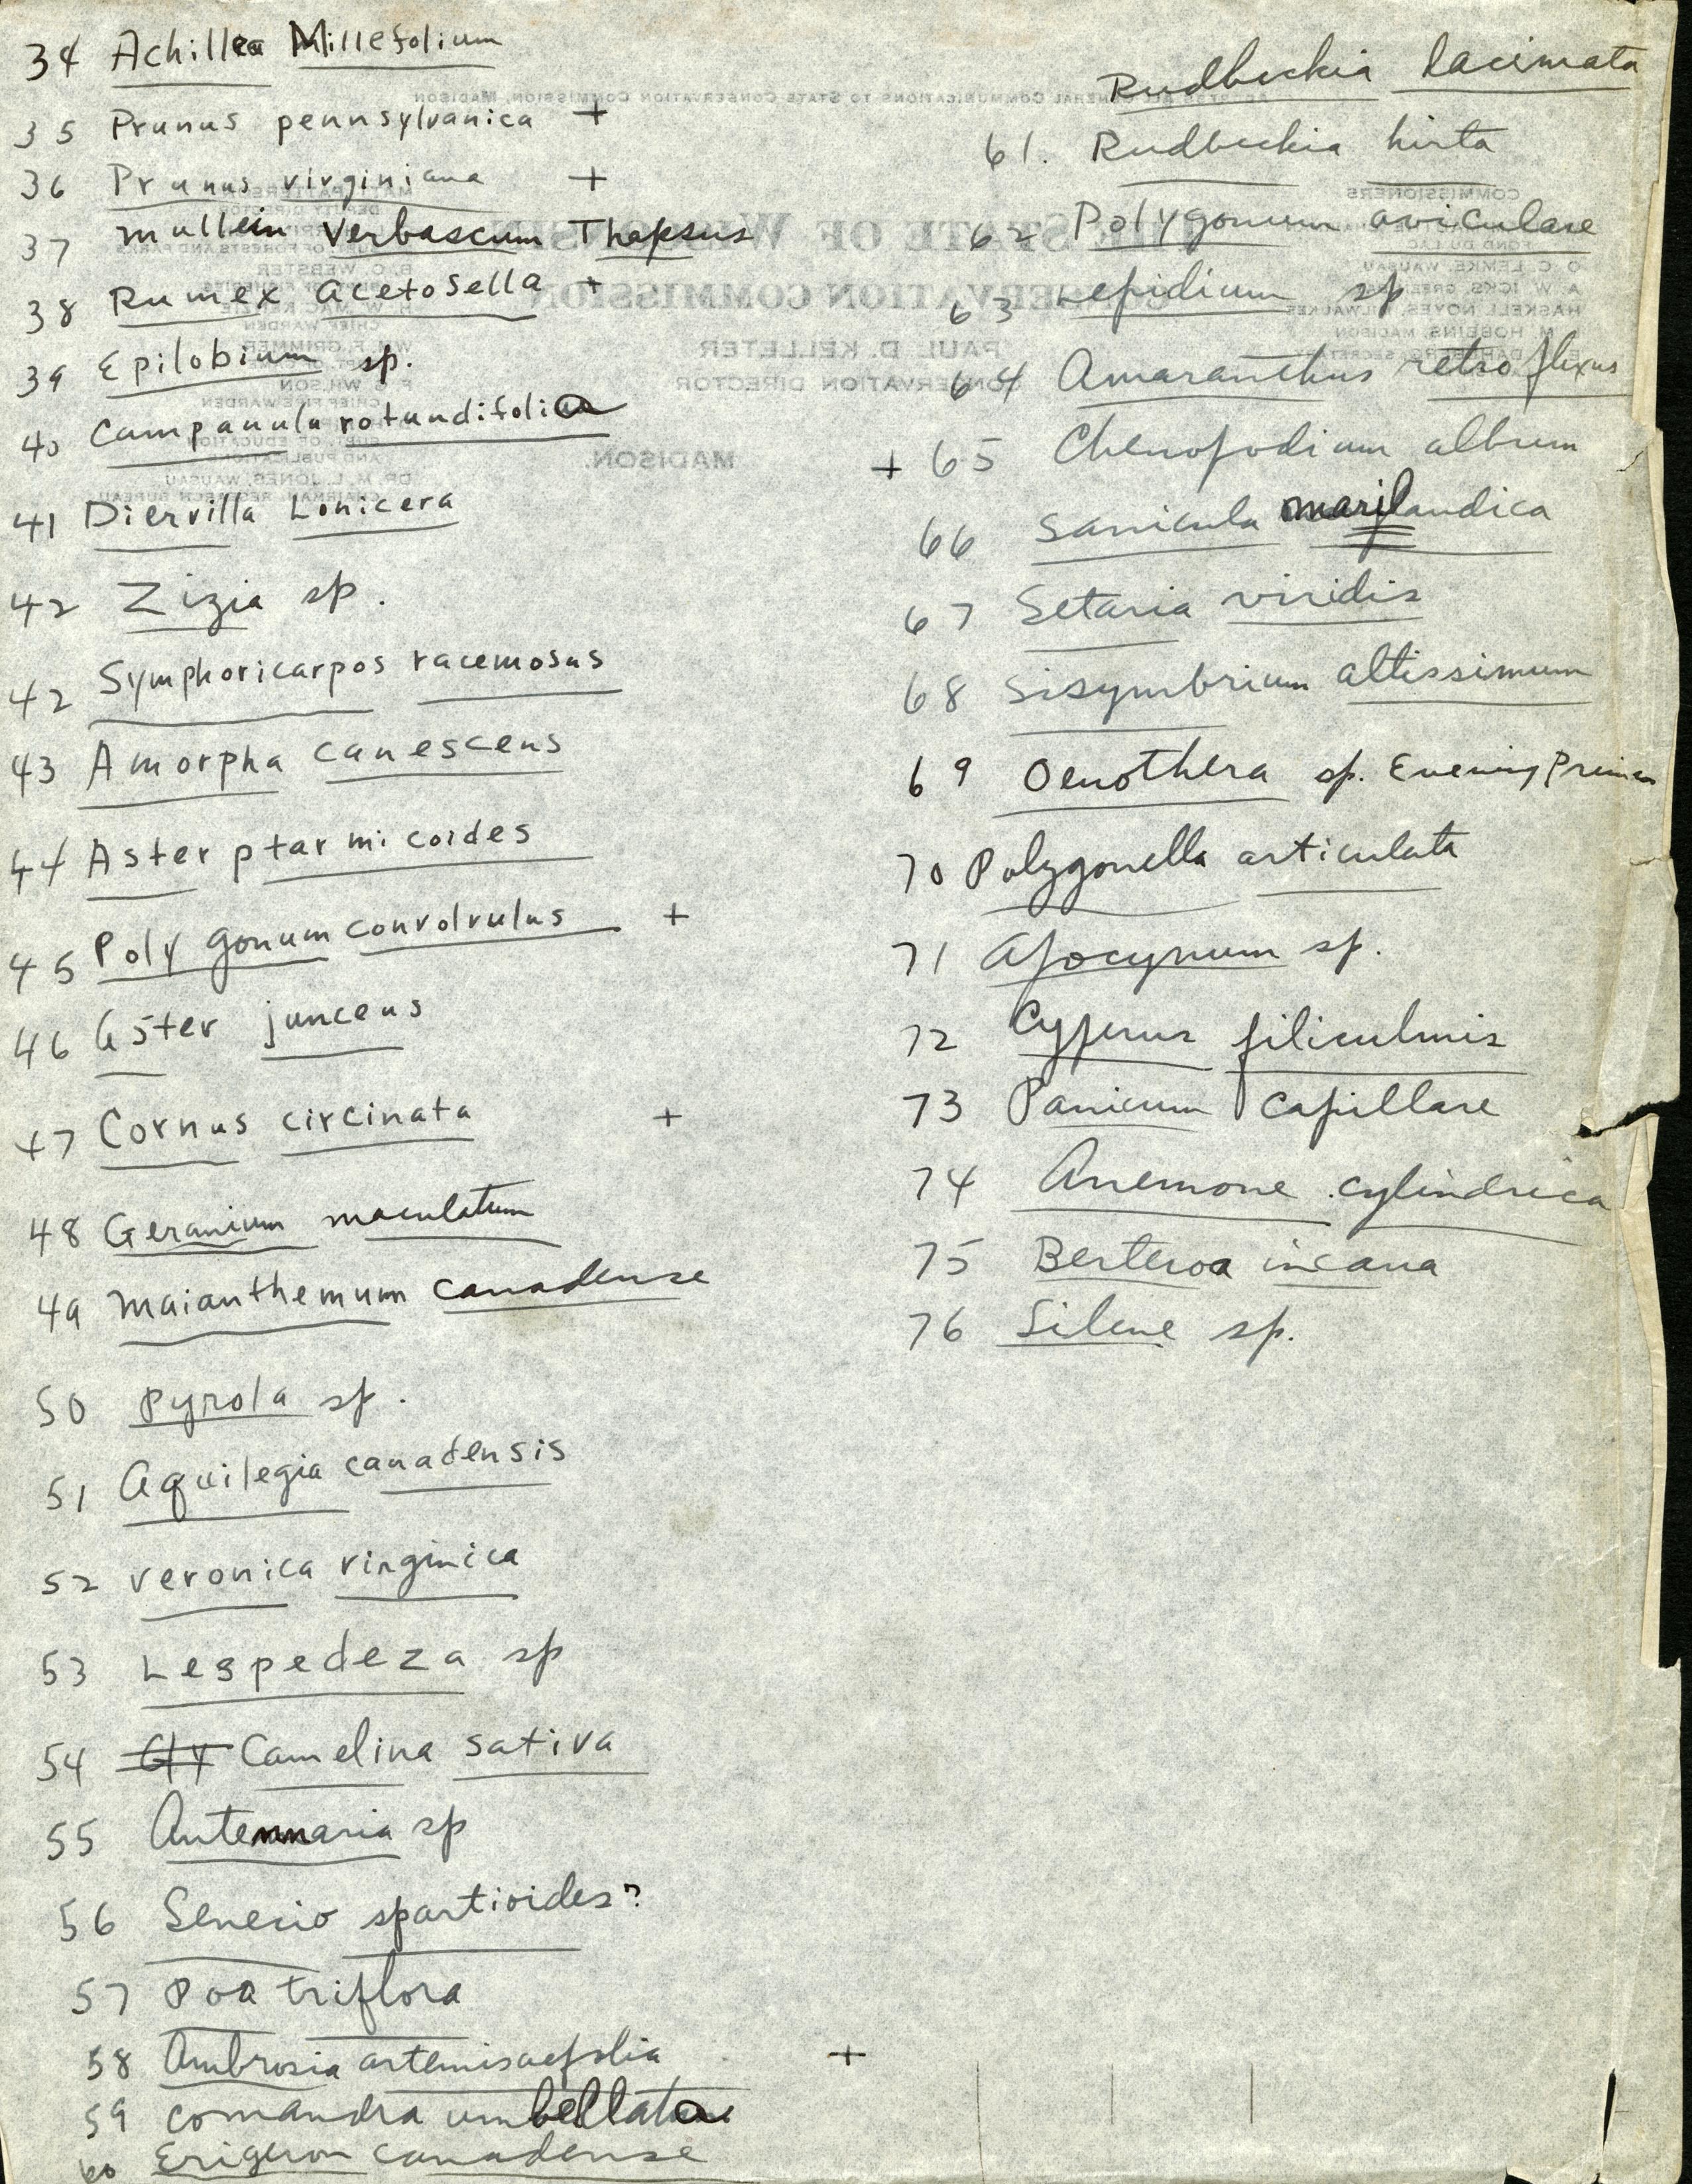 34 Achillea Millefolium
35 Prunus pennsylvanica +
36 Prunus virginiana +
37 mullein Verbascum Thapsus
38 Rumex acetosella +
39 Epilobium sp.
40 Campanula rotundifolia
41 Diervilla Lonicera
42 Zizia sp.
42 Symphoricarpos racemosus
43 Amorpha canescens
44 Aster ptarmicoides
45 Polygonum convolvulus +
46 Aster junceus
47 Cornus circinata +
48 Geranium maculatum
49 Maianthemum canadense
50 Pyrola sp.
51 Aquilegia canadensis
52 veronica virginica
53 Lespedeza sp
54 Camelina sativa
55 Antennaria sp
56 Senecio spartioides?
57 Poa triflora
58 Ambrosia artemisaefolia +
59 comandra umbellata
60 Erigeron canadense
Rudbeckia laciniata
61. Rudbeckia hirta
62 Polygonum aviculare
63 Lepidium sp
64 Amaranthus retroflexus
+ 65 Chenopodium album
66 Sanicula marilandica
67 Setaria viridis
68 Sisymbrium altissimum
69 Oenothera sp. Evening
70 Polygonella articulata
71 Apocynum sp.
72 Cyperus filiculmis
73 Panicum capillare
74 Anemone cylindrica
75 Berteroa incana
76 Silene sp.
ADDRESS ALL GENERAL COMMUNICATIONS TO STATE CONSERVATION COMMISSION, MADISON
STATE OF WISCONSIN
CONSERVATION COMMISSION
PAUL D. KELLETER
CONSERVATION DIRECTOR
MADISON.
COMMISSIONERS
FOND DU LAC
O. C. LEMKE, WAUSAU
HASKELL NOYES, MILWAUKEE
M. HOBBINS, MADISON
B. O. WEBSTER
CHIEF WARDEN
W. F. GRIMMER
F. G. WILSON
CHIEF FIRE WARDEN
SUPT. OF EDUCATION
AND PUBLICATIONS
DR. M. L. JONES, WAUSAU
CHAIRMAN, RESEARCH BUREAU